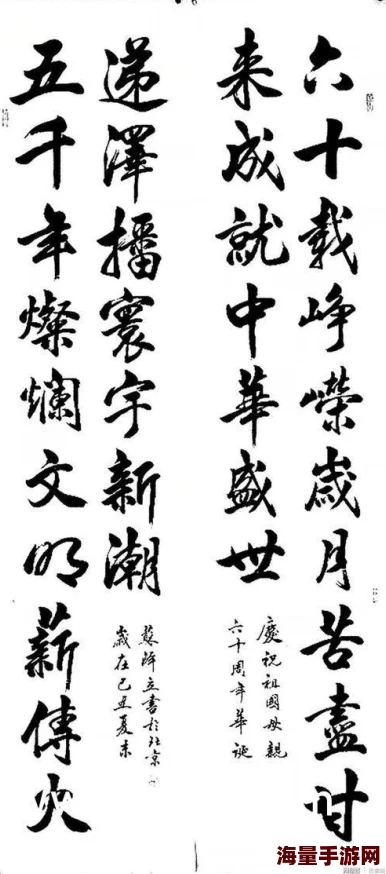 六十載崢嶸歲月苦盡甘
来成就中華盛世
慶祝祖國母親
六十周年華誕
五千年燦爛文明薪傳火
遞澤播寰宇新潮
蘇立書於北京
歲在己丑夏末
海量手游网